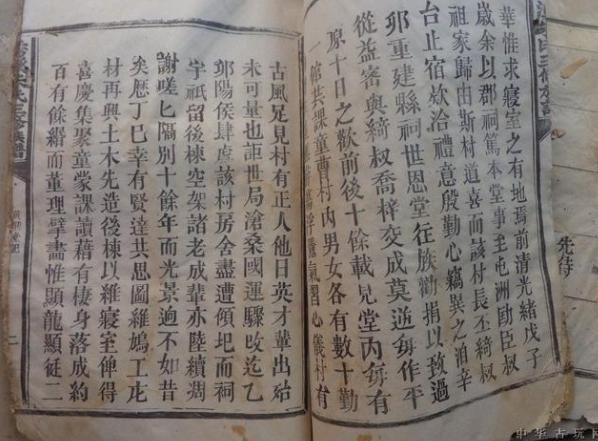 華惟求寢室之有地焉前清光緒戊子
歲余以郡祠篤本堂事至屯洲勛臣叔
祖家歸由斯村道喜而該村長丕綺叔
台止宿欸洽禮意殷勤心竊異之洎辛
卯重建縣祠世恩堂徃族勸捐以致過
從益密與綺叔喬梓交成莫逆每作平
原十日之歡前後十餘載見堂丙每有
一館共課童曹村內男女各有數十勤
習心儀村有
古風足見村有正人他日英才華出殆
未可量也詎世局滄桑國運驟改迄乙
卯陽侯肆虐該村房全盡遭傾圯而祠
宇祇留後棟空架諸老成輩亦陸續凋
謝嗟乚隔別十餘年而光景逈不如昔
矣歴丁巳幸有賢達共思圖維鳩工庀
材再興土木先造後棟以維寢室俾得
喜慶集聚童蒙課讀藉有棲身落成約
百有餘緡而董理擘畵惟顯龍顯𢓜二
二
先侍
中华古玩网